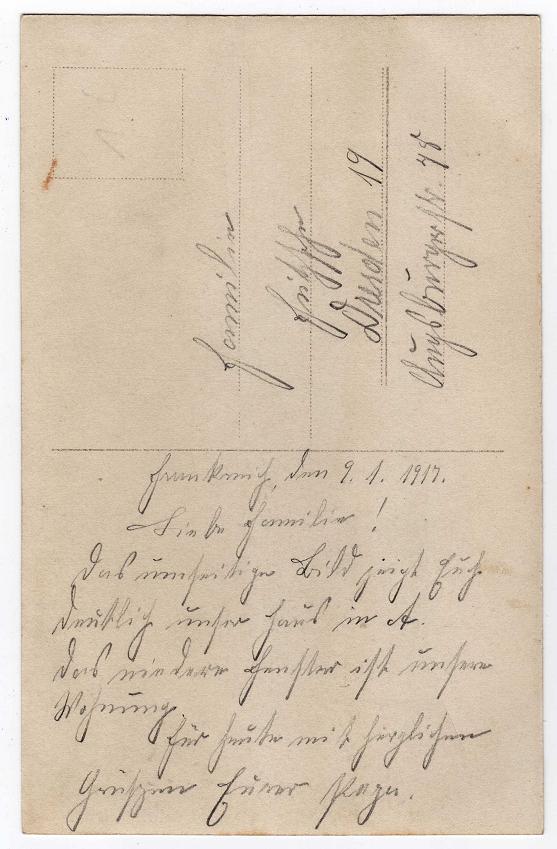 Familie
Dresden 19
Augsburgerstr. 78
Frankreich, den 9. 1. 1917.
Liebe Familie!
Das umseitige Bild zeigt Euch
deutlich unser Haus in A.
Das niedere Fenster ist unsere
Wohnung.
Für heute mit herzlichen
Grüszen Eurer Papa.